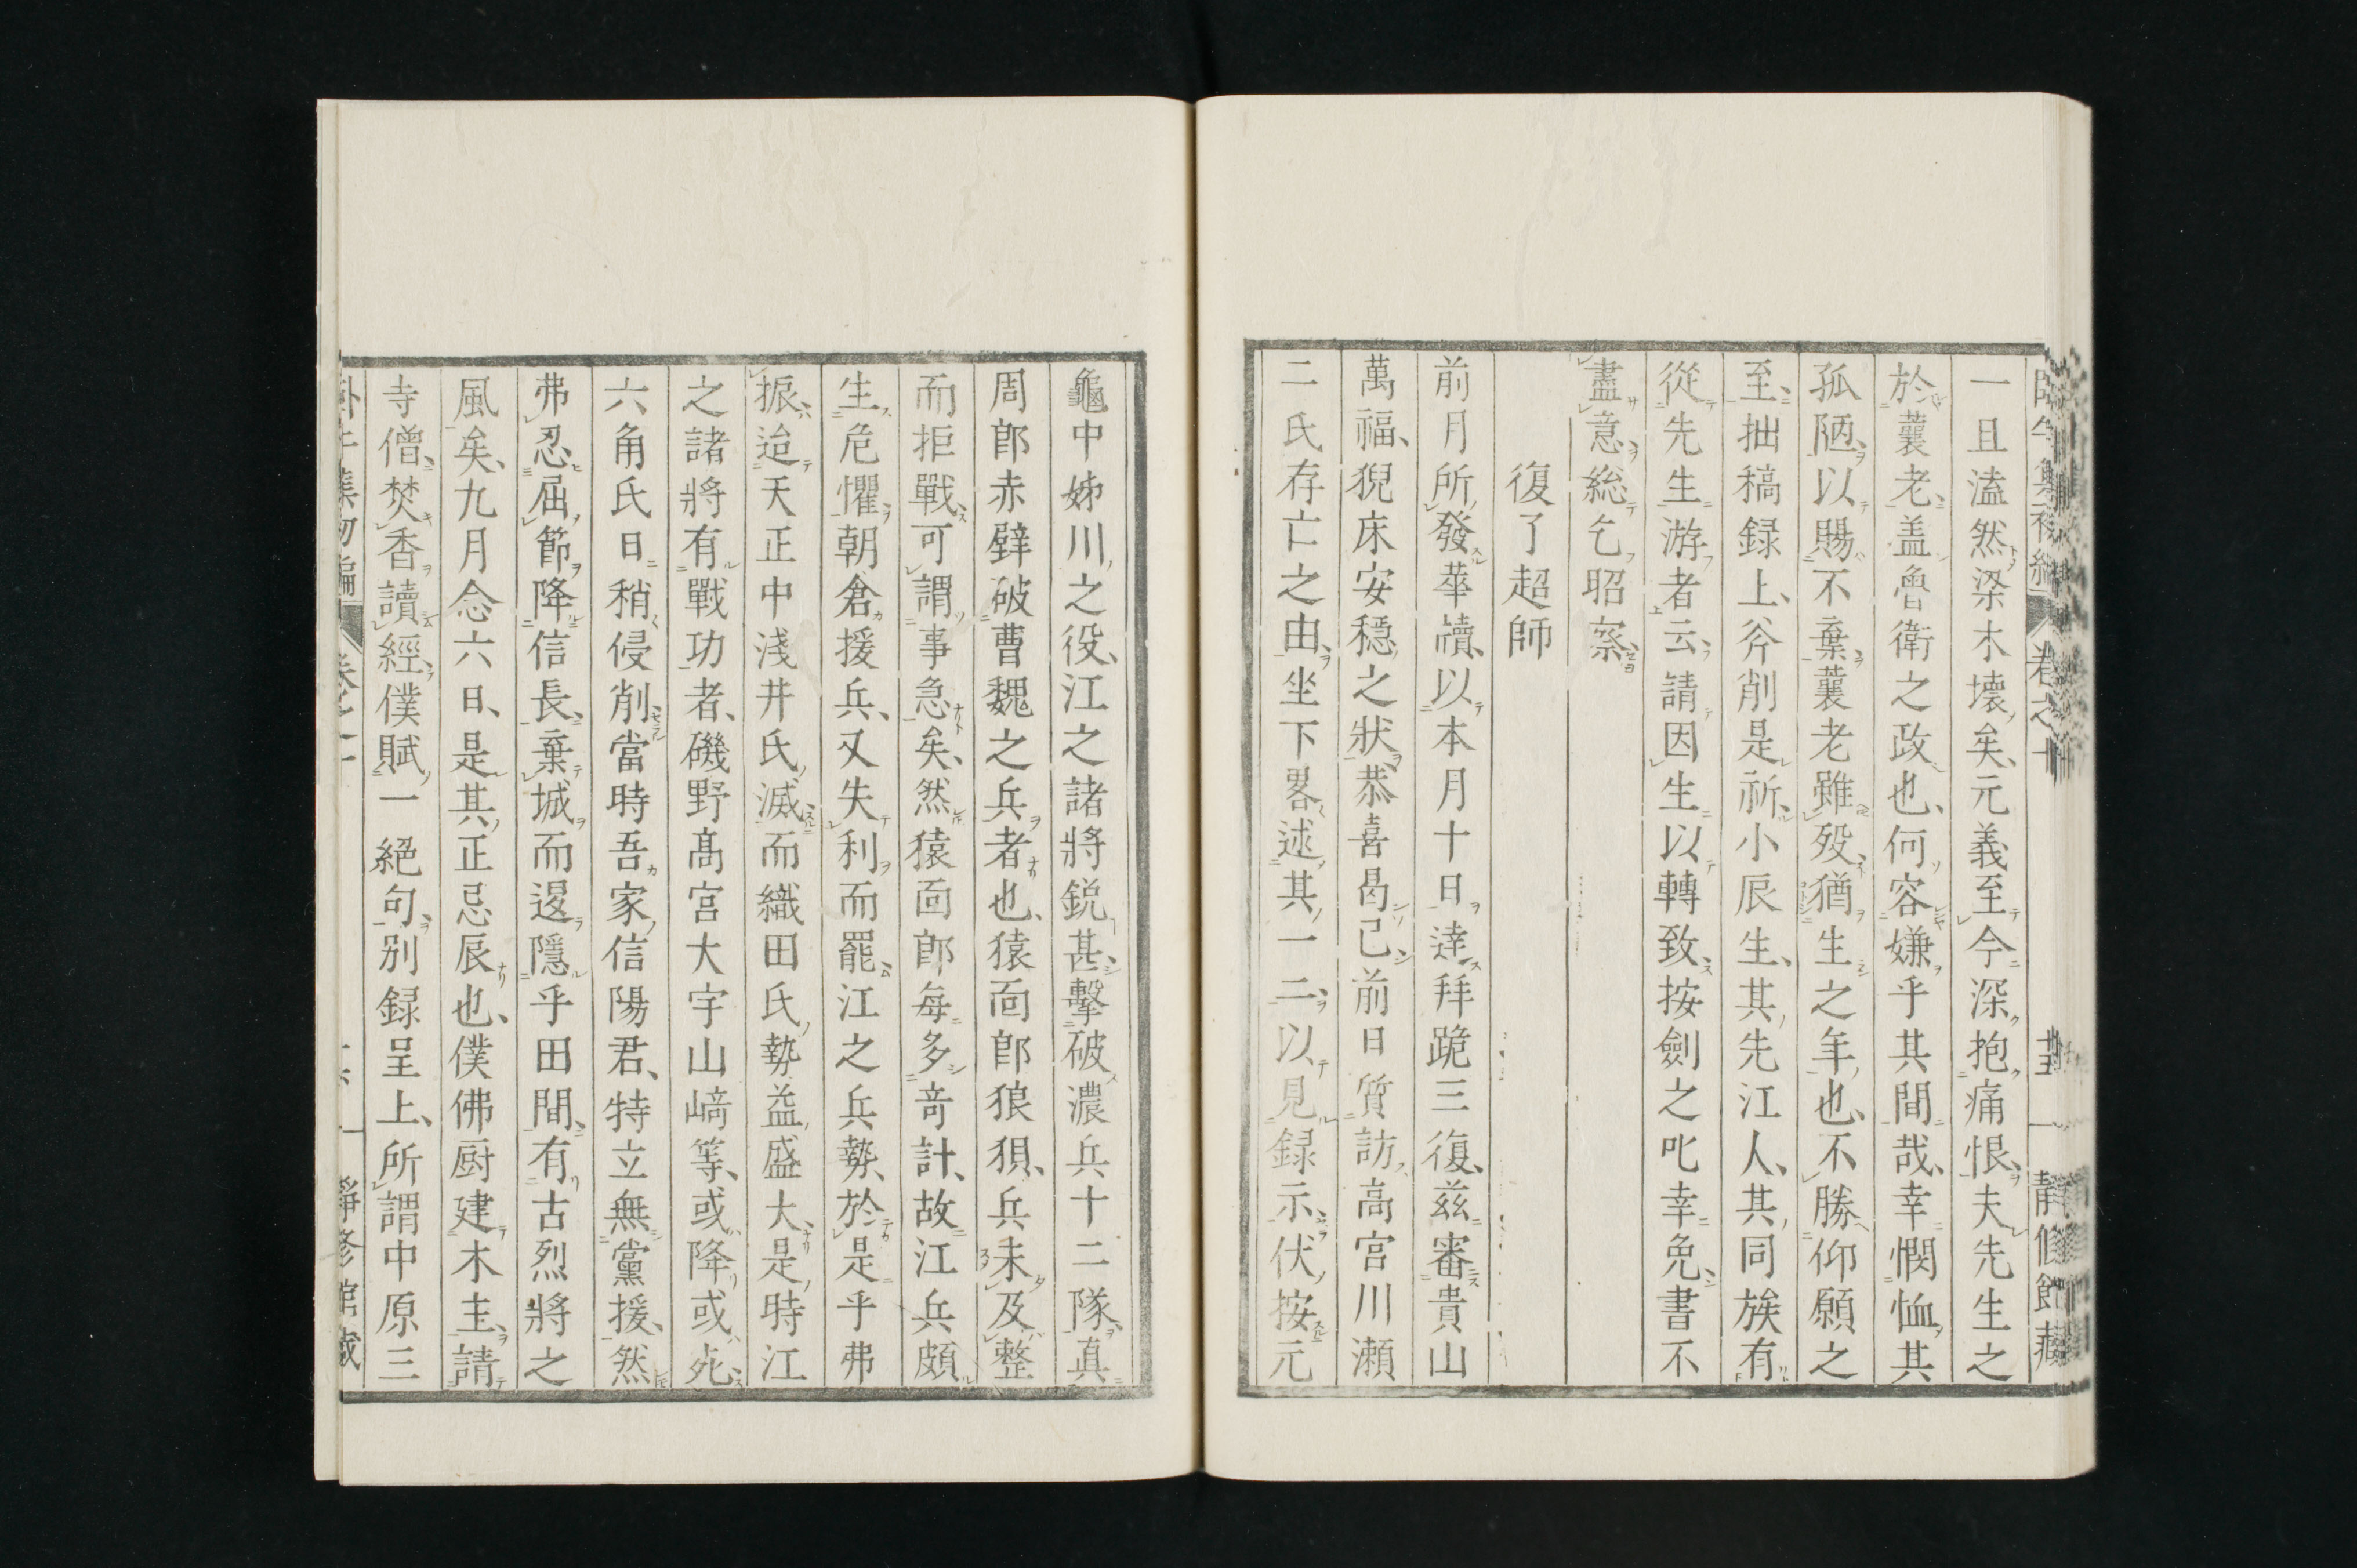 一旦溘然梁木壞矣、元義至今深抱痛恨、夫先生之
於蘐老、盖魯衛之政也、何容嫌乎其間哉、幸憫恤其
孤陋、以賜不棄蘐老雖歿、猶生之年也、不勝仰願之
至、拙稿録上、斧削是祈、小辰生、其先江人、其同族有
從先生游者云、請因生以轉致、按劍之叱幸免、書不
盡意、総乞昭察、
復了超師
前月所發華牘、以本月十日達拜跪三復、兹審貴山
萬福、猊床安穏之狀、恭喜曷已前日質訪高宮川瀬
二氏存亡之由、坐下畧述其一二、以見録示、伏按元
龜中姊川之役、江之諸將銳甚、擊破濃兵十二隊、真
周郎赤壁破曹魏之兵者也、猿面郎狼狽、兵未及整
而拒戰、可謂事急矣、然猿面郎每多奇計、故江兵頗
生危懼、朝倉援兵、又失利而罷、江之兵勢、於是乎弗
振、迨天正中淺井氏滅而織田氏勢益盛大、是時江
之諸將有戰功者、磯野髙宮大宇山﨑等、或降或死、
六角氏日稍侵削、當時吾家信陽君、特立無黨援、然
弗忍屈節降信長、棄城而遐隱乎田間、有古烈將之
風矣、九月念六日、是其正忌辰也、僕佛厨建木主、請
寺僧、焚香讀經、僕賦一絕句、別録呈上、所謂中原三